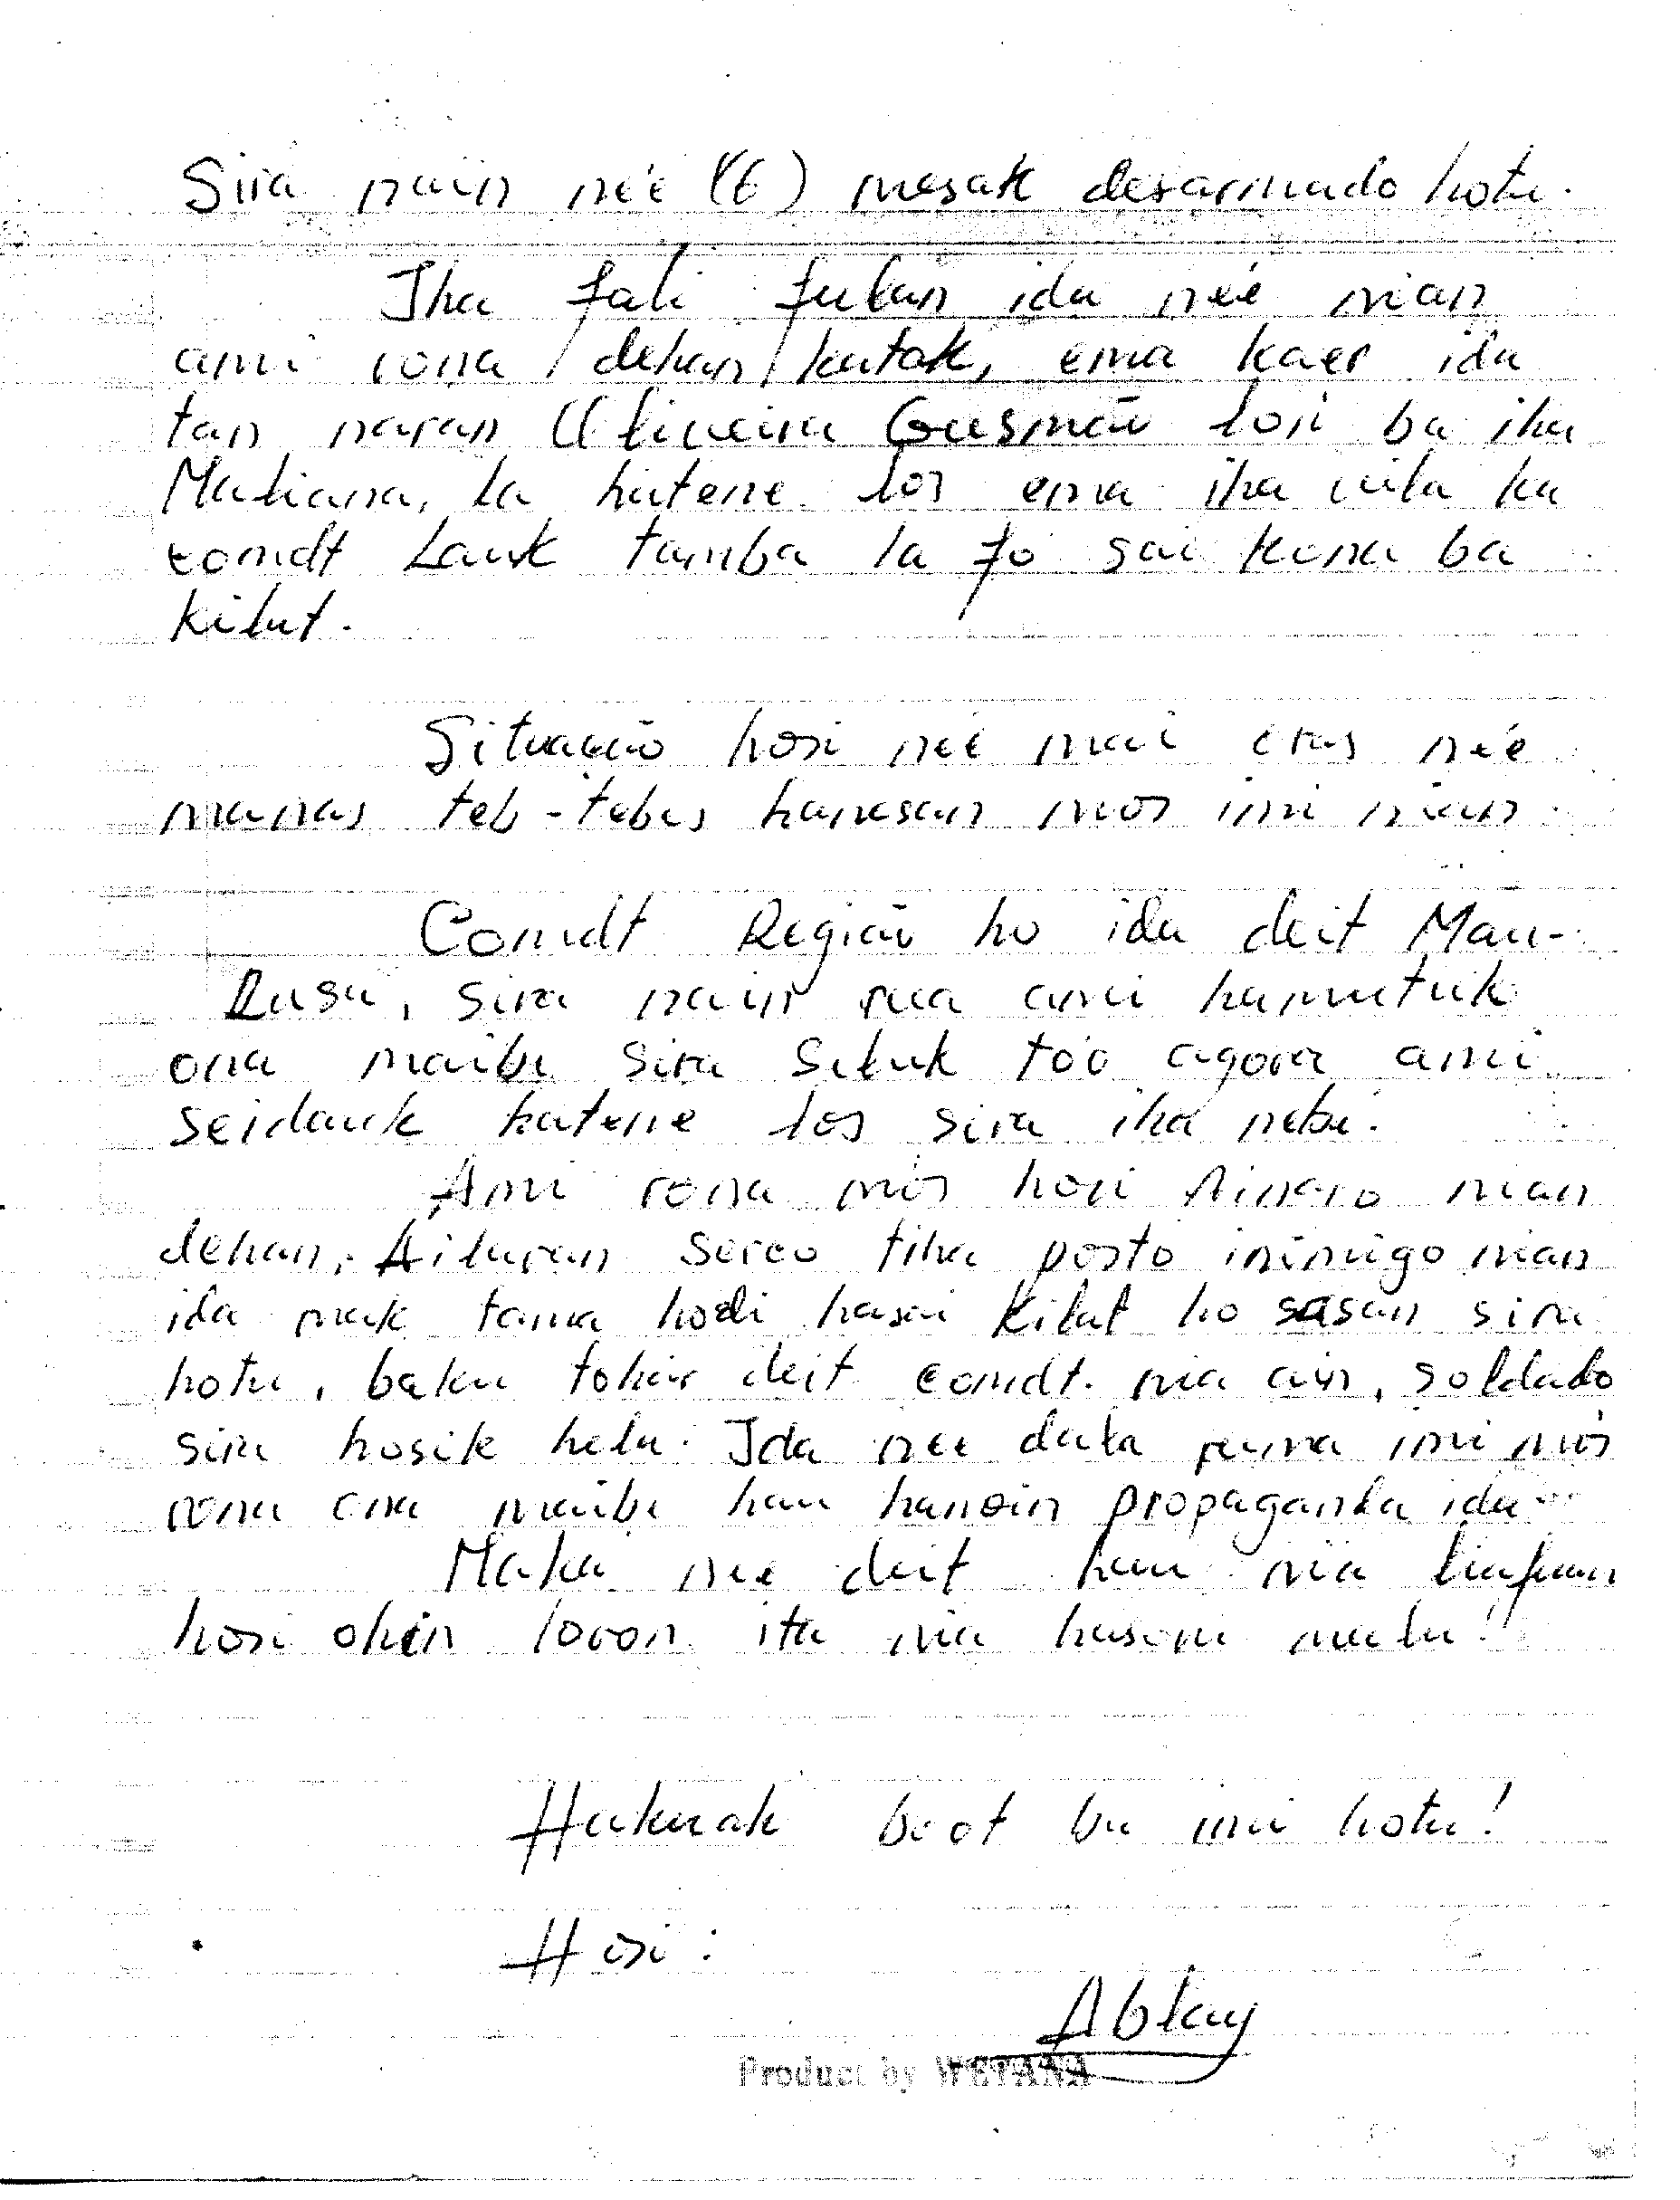 Sira nain neé (6) mesak desarmado hotu.
Iha fali fulan ida neé nian
ami rona dehan katak, ema kaer ida
tan naran Oliveira Gusmão lori ba iha
Maliana, la hatene los ema iha vila ka
comdt Lauk tamba la fó sai kona ba
kilat.
Situação hosi neé mai oras neé
manas teb-tebes hanesan mos imi nian.
Comdt Região ho ida deit Mau-
Rusa, sira nain rua ami hamutuk
ona maibe sira seluk tó'o agora ami
seidauk hatene los sira iha nebé.
Ami rona mós hosi Ainaro nian
dehan, Aituran serco tiha posto inimigo nian
ida mak tama hodi hasai kilat ho sasan sira
hotu, baku tohar deit comdt. nia ain, soldado
sira husik hela. Ida neé dala ruma imi mós
rona ona maibe hau hanoin propaganda ida.
Maka neé deit hau nia liafuan
hosi ohin loron ita nia hasoru malu!
Hakuak boot ba imi hotu!
Hosi:
Ablay
Product by WETANA